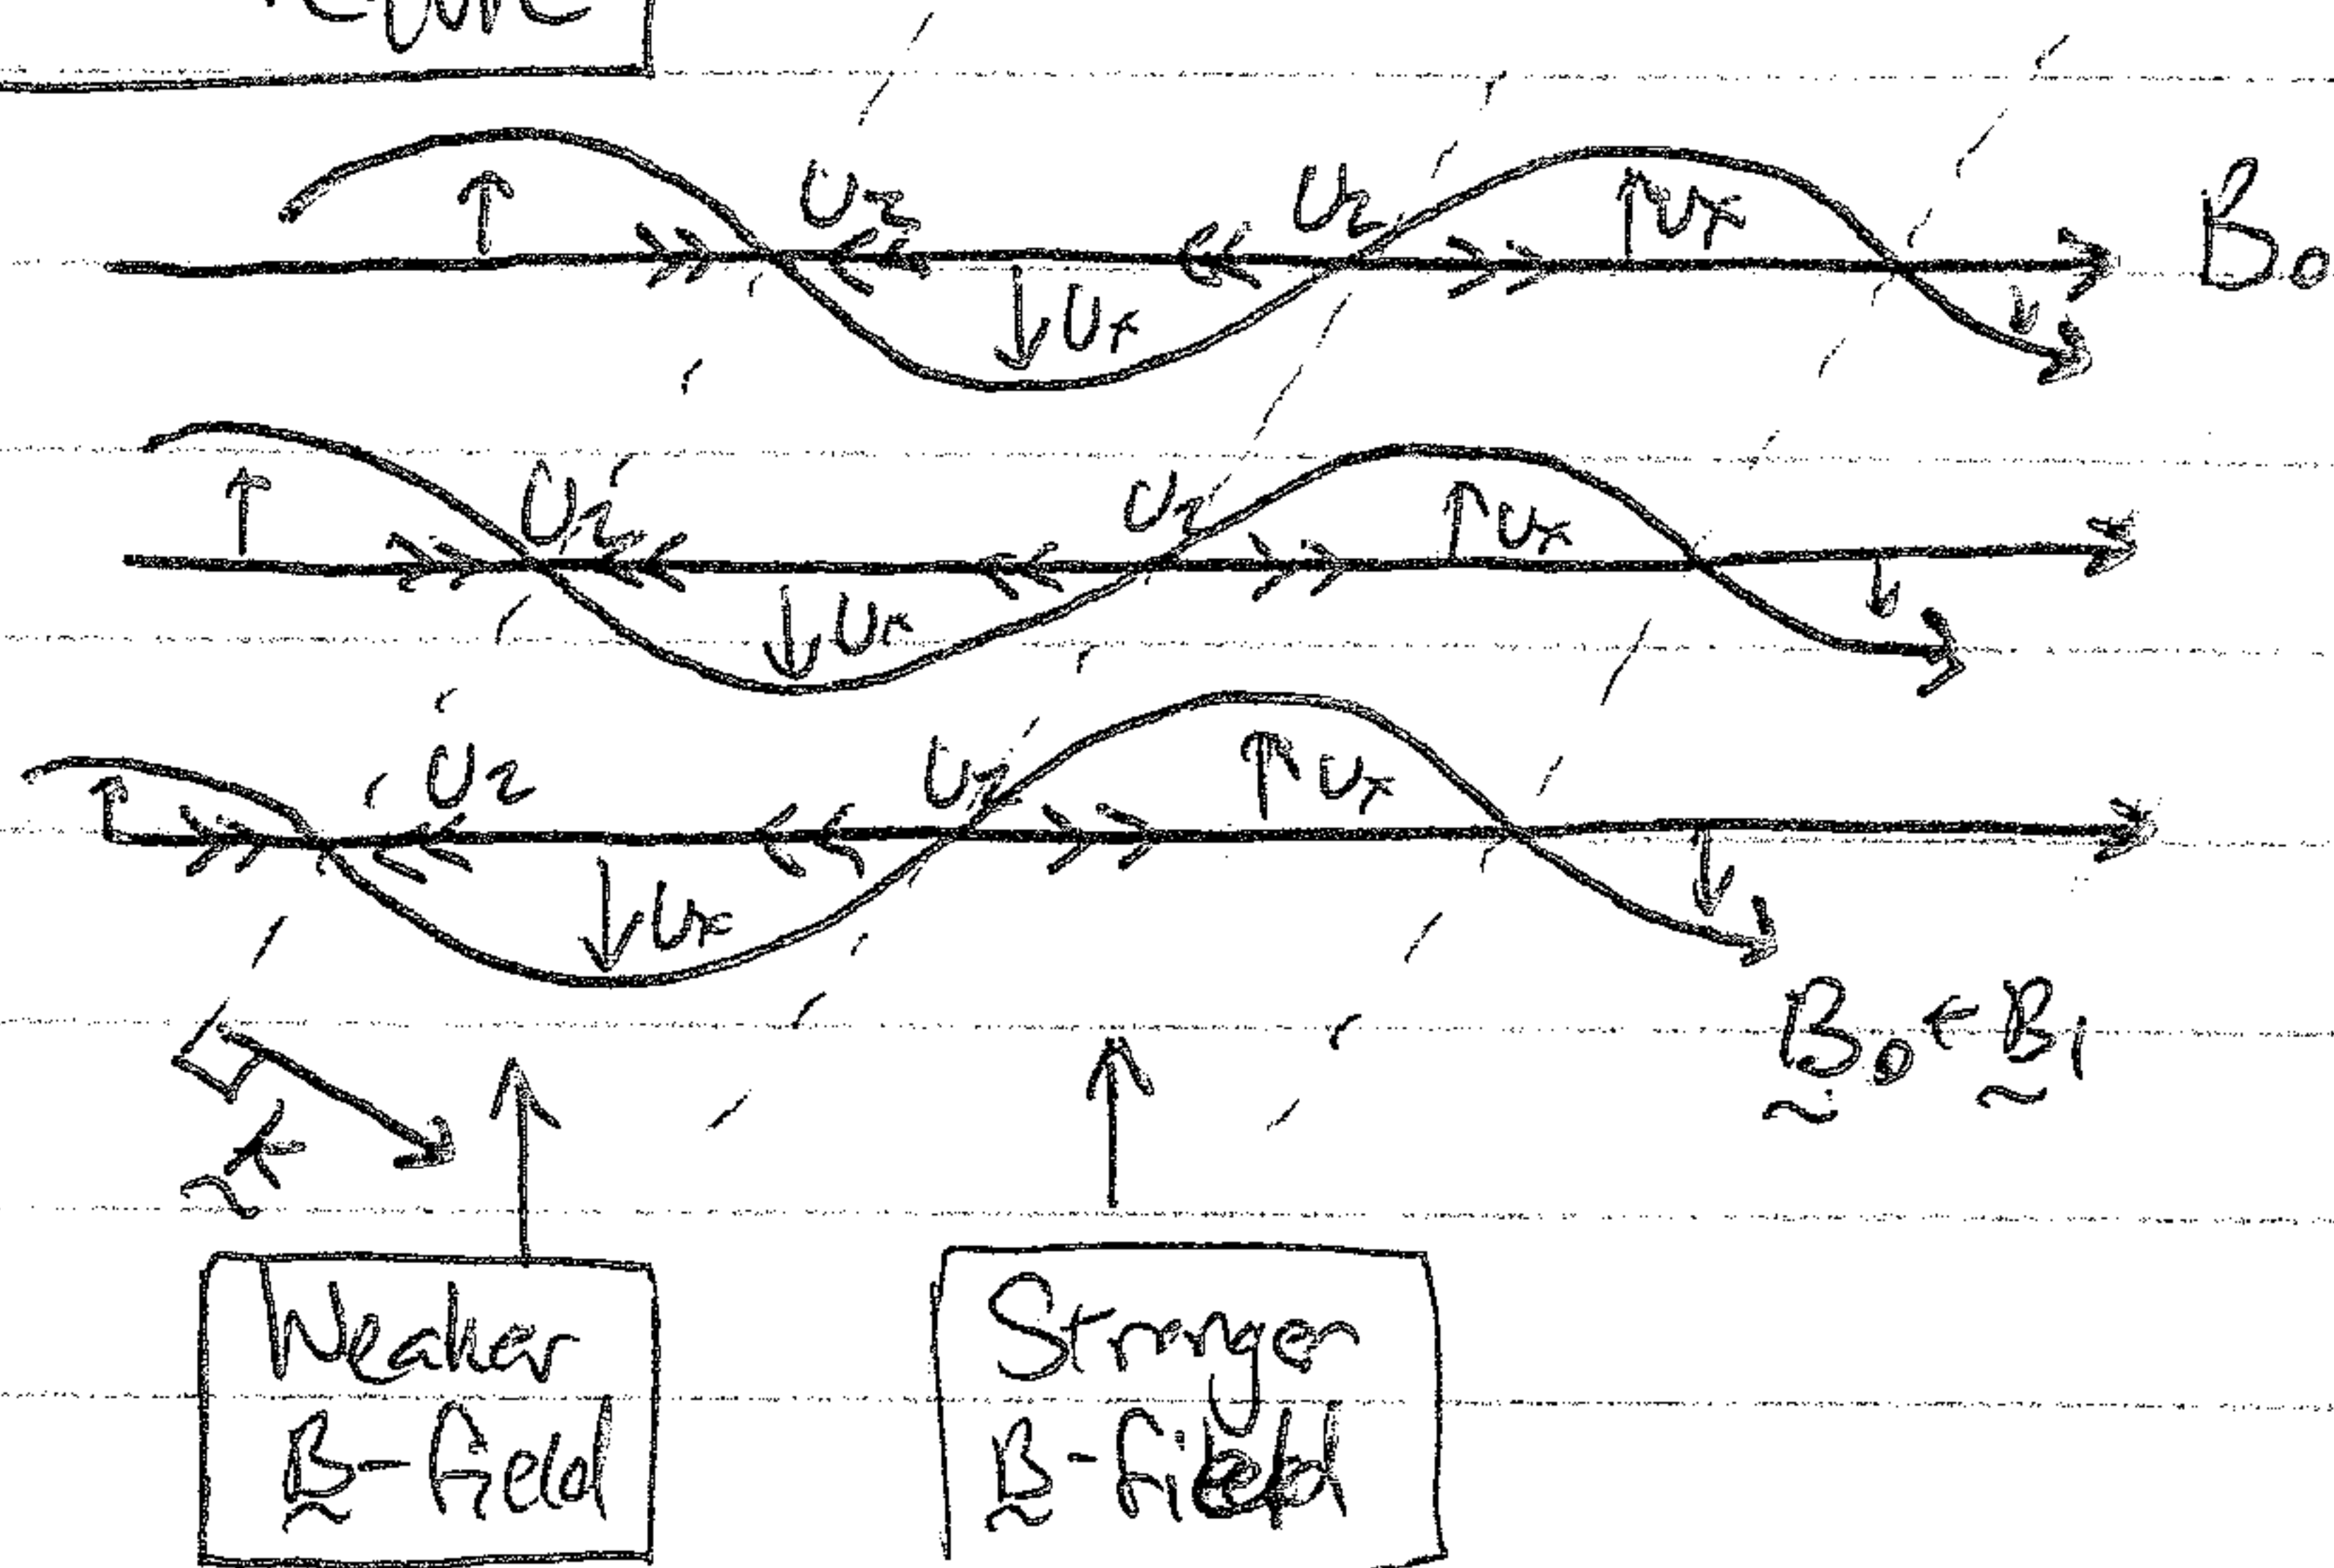 U_z U_z U_x B_0
U_x
U_z U_z U_x
U_x
U_z U_z U_x
U_x
B_0 + B_1
k
Weaker
B-field
Stronger
B-field